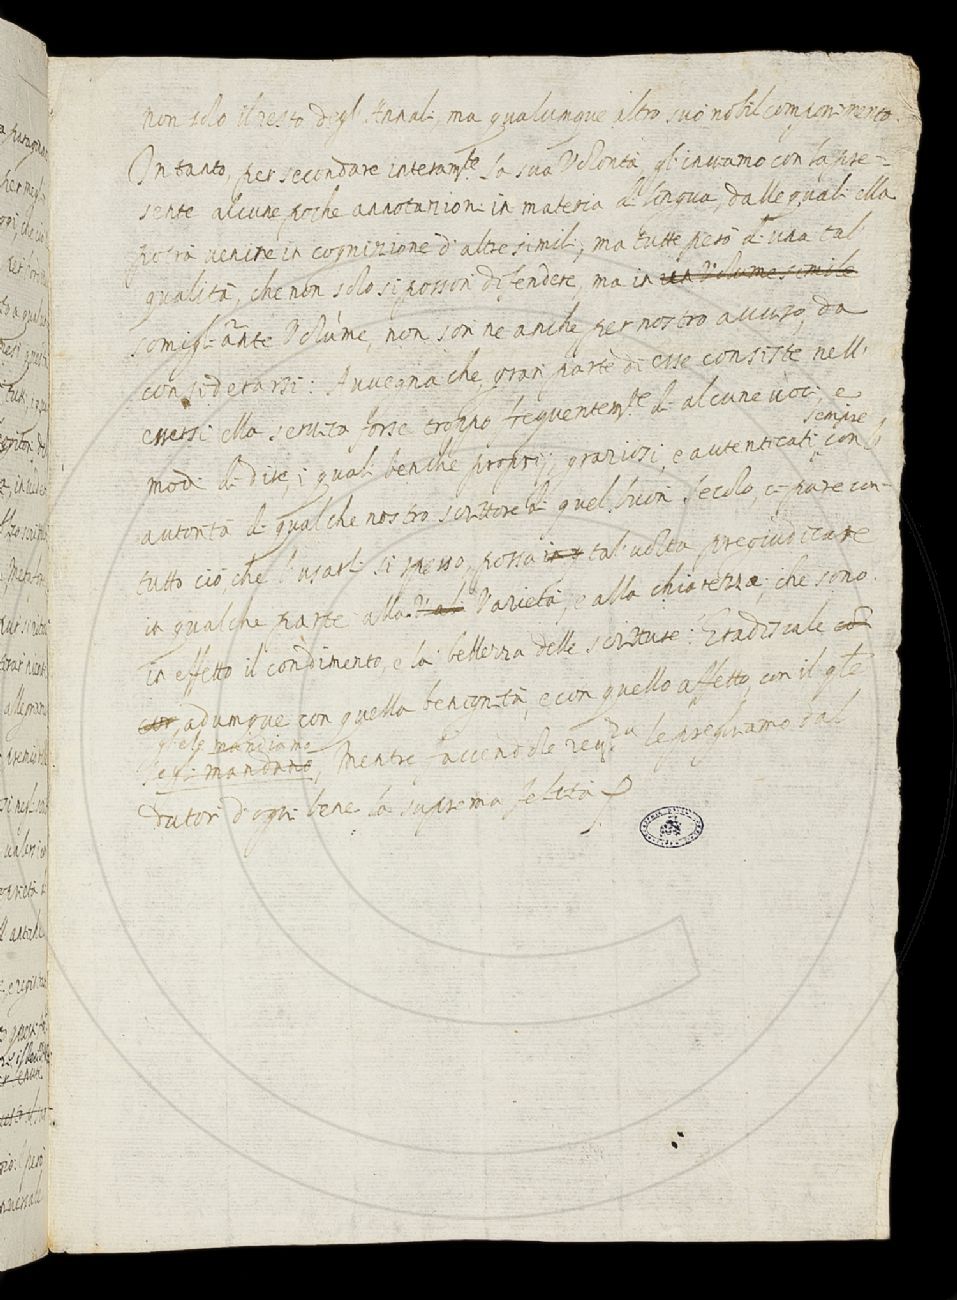 non solo il resto degl'Annali, ma qualunque altro suo nobil componimento.
In tanto, per secondare interamte la sua Volontà gl'inuiamo con la pre=
sente alcune poche annotazioni in materia di lingua, dalle quali ella
potrà uenire in cognizione d'altre simili, ma tutte però d'una tal
qualità, che non solo si posson difendere, ma in un Volume simile
somigliante Volume, non son ne anche per nostro auuiso, da
considerarsi: Auuegna che, gran parte di esse consiste nell'
essersi ella seruita forse troppo frequentemte di alcune uoci, e
modi di dire, i quali benche proprij, graziosi, e autenticati sempre con l'
autorità di qualche nostro scrittore di quel buon secolo, ci pare con=
tutto ciò, che l'usarli sì spesso, possa in q tal'uolta pregiudicare
in qualche parte alla Varietà, e alla chiarezza, che sono
in effetto il condimento, e la bellezza delle scritture: Gradiscale
adunque con quella benignità, e con quello affetto, con il qle
gliele mandiamo
se gli mandano, mentre facendole reuza le preghiamo dal
dator d'ogni bene la suprema felicità